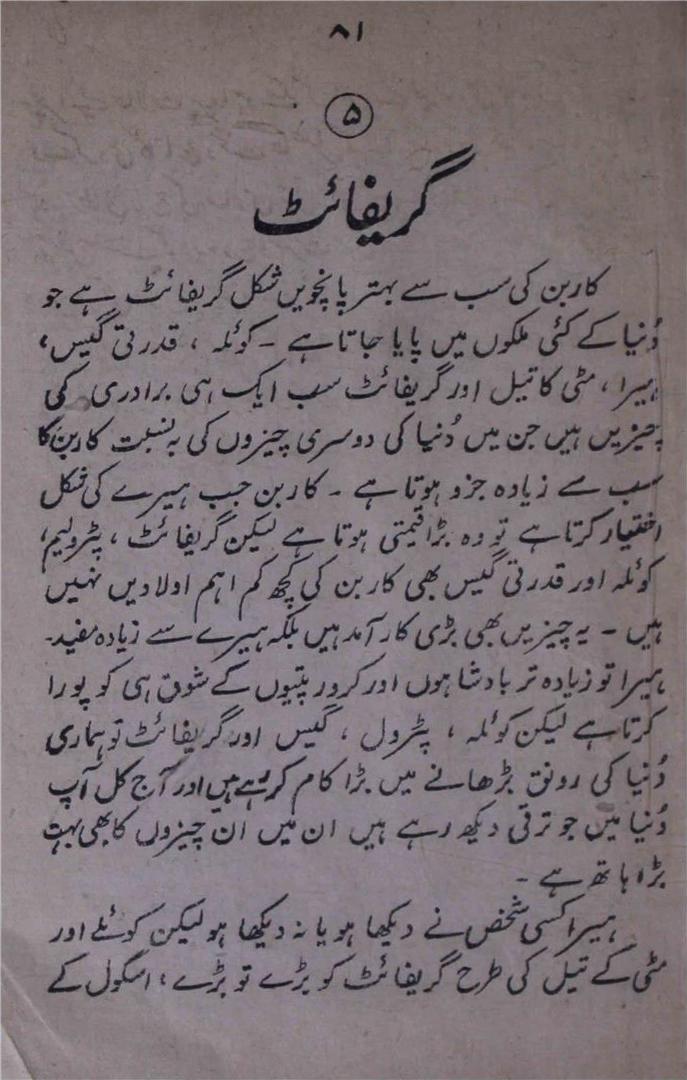 ۸۱
۵
گریفائٹ
کاربن کی سب سے بہتر پانچویں شکل گریفائٹ ہے جو
دُنیا کے کئی ملکوں میں پایا جاتا ہے ۔ کوئلہ ، قدرتی گیس،
ہیرا ، مٹی کا تیل اور گریفائٹ سب ایک ہی برادری کی
چیزیں ہیں جن میں دُنیا کی دوسری چیزوں کی بہ نسبت کاربن کا
سب سے زیادہ جزو ہوتا ہے ۔ کاربن جب ہیرے کی شکل
اختیار کرتا ہے تو وہ بڑا قیمتی ہوتا ہے لیکن گریفائٹ ، پٹرولیم،
کوئلہ اور قدرتی گیس بھی کاربن کی کچھ کم اہم اولادیں نہیں
ہیں ۔ یہ چیزیں بھی بڑی کارآمد ہیں بلکہ ہیرے سے زیادہ مفید۔
ہیرا تو زیادہ تر بادشاہوں اور کروڑ پتیوں کے شوق ہی کو پورا
کرتا ہے لیکن کوئلہ ، پٹرول ، گیس اور گریفائٹ تو ہماری
دُنیا کی رونق بڑھانے میں بڑا کام کر رہے ہیں اور آج کل آپ
دُنیا میں جو ترقی دیکھ رہے ہیں ان میں ان چیزوں کا بھی بہت
بڑا ہاتھ ہے ۔
ہیرا کسی شخص نے دیکھا ہو یا نہ دیکھا ہو لیکن کوئلے اور
مٹی کے تیل کی طرح گریفائٹ کو بڑے تو بڑے ، اسکول کے